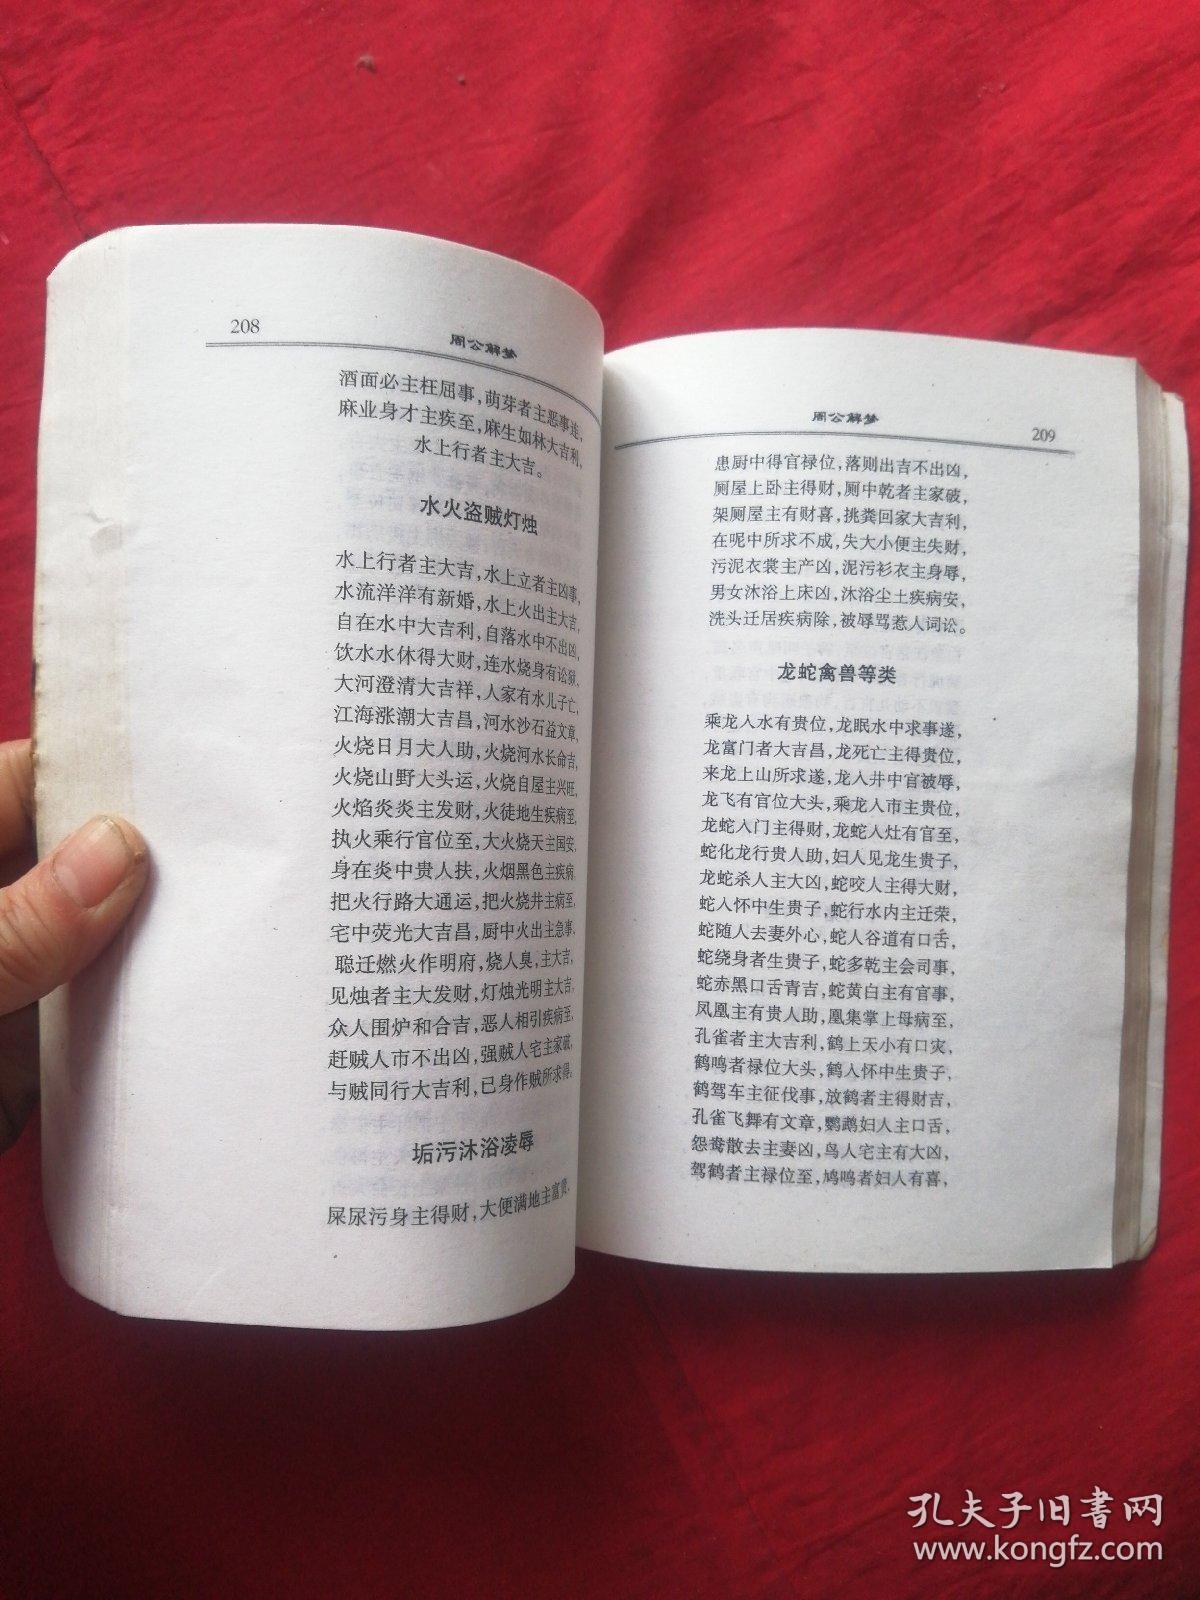 208
周公解梦
酒面必主枉屈事,萌芽者主恶事连,
麻业身才主疾至,麻生如林大吉利,
水上行者主大吉。
水火盗贼灯烛
水上行者主大吉,水上立者主凶事,
水流洋洋有新婚,水上火出主大吉,
自在水中大吉利,自落水中不出凶,
饮水水休得大财,连水烧身有讼狱,
大河澄清大吉祥,人家有水儿子亡,
江海涨潮大吉昌,河水沙石益文章,
火烧日月大人助,火烧河水长命吉,
火烧山野大头运,火烧自屋主兴旺,
火焰炎炎主发财,火徒地生疾病至,
执火乘行官位至,大火烧天主国安,
身在炎中贵人扶,火烟黑色主疾病,
把火行路大通运,把火烧井主病至,
宅中荧光大吉昌,厨中火出主急事,
聪迁燃火作明府,烧人臭,主大吉,
见烛者主大发财,灯烛光明主大吉,
众人围炉和合吉,恶人相引疾病至,
赶贼人市不出凶,强贼人宅主家破,
与贼同行大吉利,已身作贼所求得。
垢污沐浴凌辱
屎尿污身主得财,大便满地主富贵,
周公解梦
209
患厨中得官禄位,落则出吉不出凶,
厕屋上卧主得财,厕中乾者主家破,
架厕屋主有财喜,挑粪回家大吉利,
在呢中所求不成,失大小便主失财,
污泥衣裳主产凶,泥污衫衣主身辱,
男女沐浴上床凶,沐浴尘土疾病安,
洗头迁居疾病除,被辱骂惹人词讼。
龙蛇禽兽等类
乘龙入水有贵位,龙眠水中求事遂,
龙富门者大吉昌,龙死亡主得贵位,
来龙上山所求遂,龙入井中官被辱,
龙飞有官位大头,乘龙人市主贵位,
龙蛇入门主得财,龙蛇人灶有官至,
蛇化龙行贵人助,妇人见龙生贵子,
龙蛇杀人主大凶,蛇咬人主得大财,
蛇入怀中生贵子,蛇行水内主迁荣,
蛇随人去妻外心,蛇人谷道有口舌,
蛇绕身者生贵子,蛇多乾主会司事,
蛇赤黑口舌青吉,蛇黄白主有官事,
凤凰主有贵人助,凰集掌上母病至,
孔雀者主大吉利,鹤上天小有口灾,
鹤鸣者禄位大头,鹤入怀中生贵子,
鹤驾车主征伐事,放鹤者主得财吉,
孔雀飞舞有文章,鹦鹉妇人主口舌,
怨鸯散去主妻凶,鸟人宅主有大凶,
驾鹤者主禄位至,鸠鸣者妇人有喜,
孔夫子旧书网
www.kongfz.com